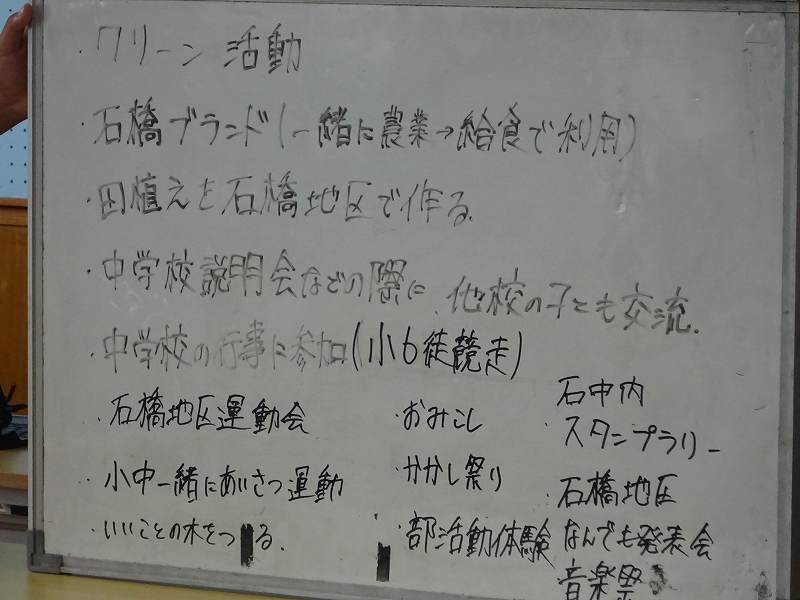 ・クリーン活動
・石橋ブランド(一緒に農業→給食で利用)
・田植えを石橋地区で作る。
・中学校説明会などの際に、他校の子とも交流。
・中学校の行事に参加(小6徒競走)
・石橋地区運動会
・小中一緒にあいさつ運動
・いいことの木をつ る。
・おみこし
・かかし祭り
・部活動体験
・石中内
スタンプラリー
・石橋地区
なんでも発表会
音楽祭